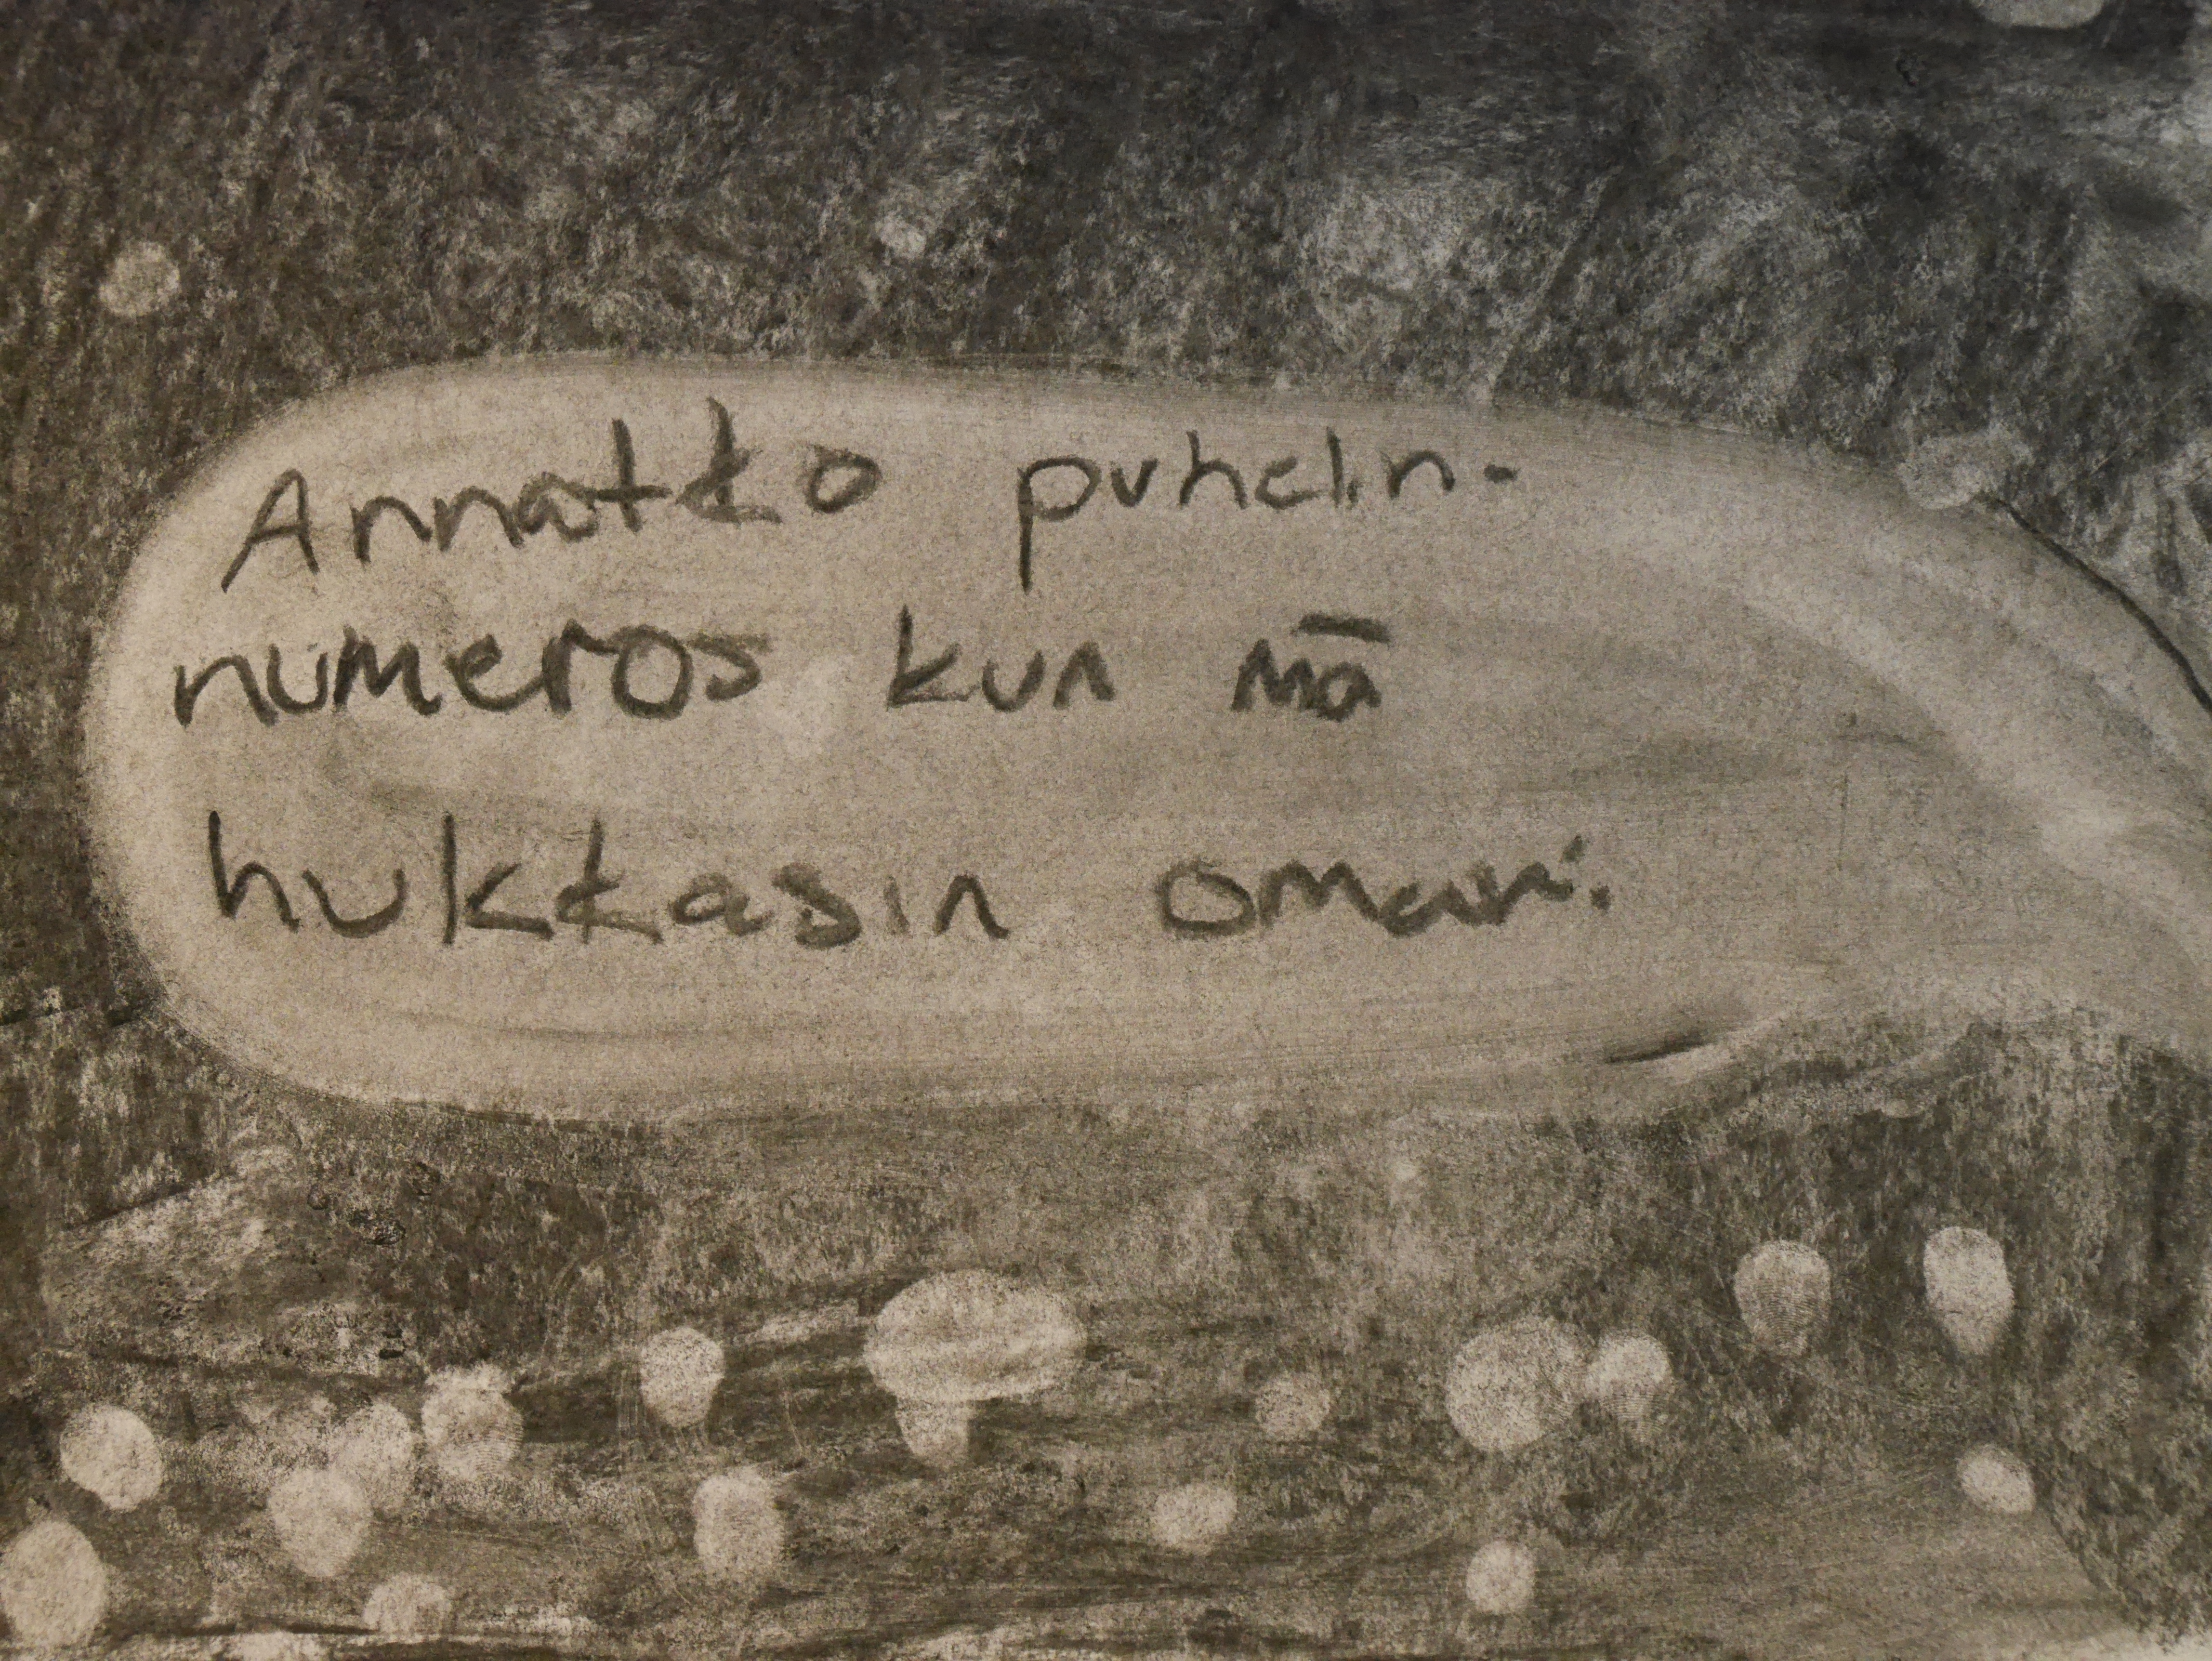 Annatko puhelin-
numeros kun mä
hukkasin omani.